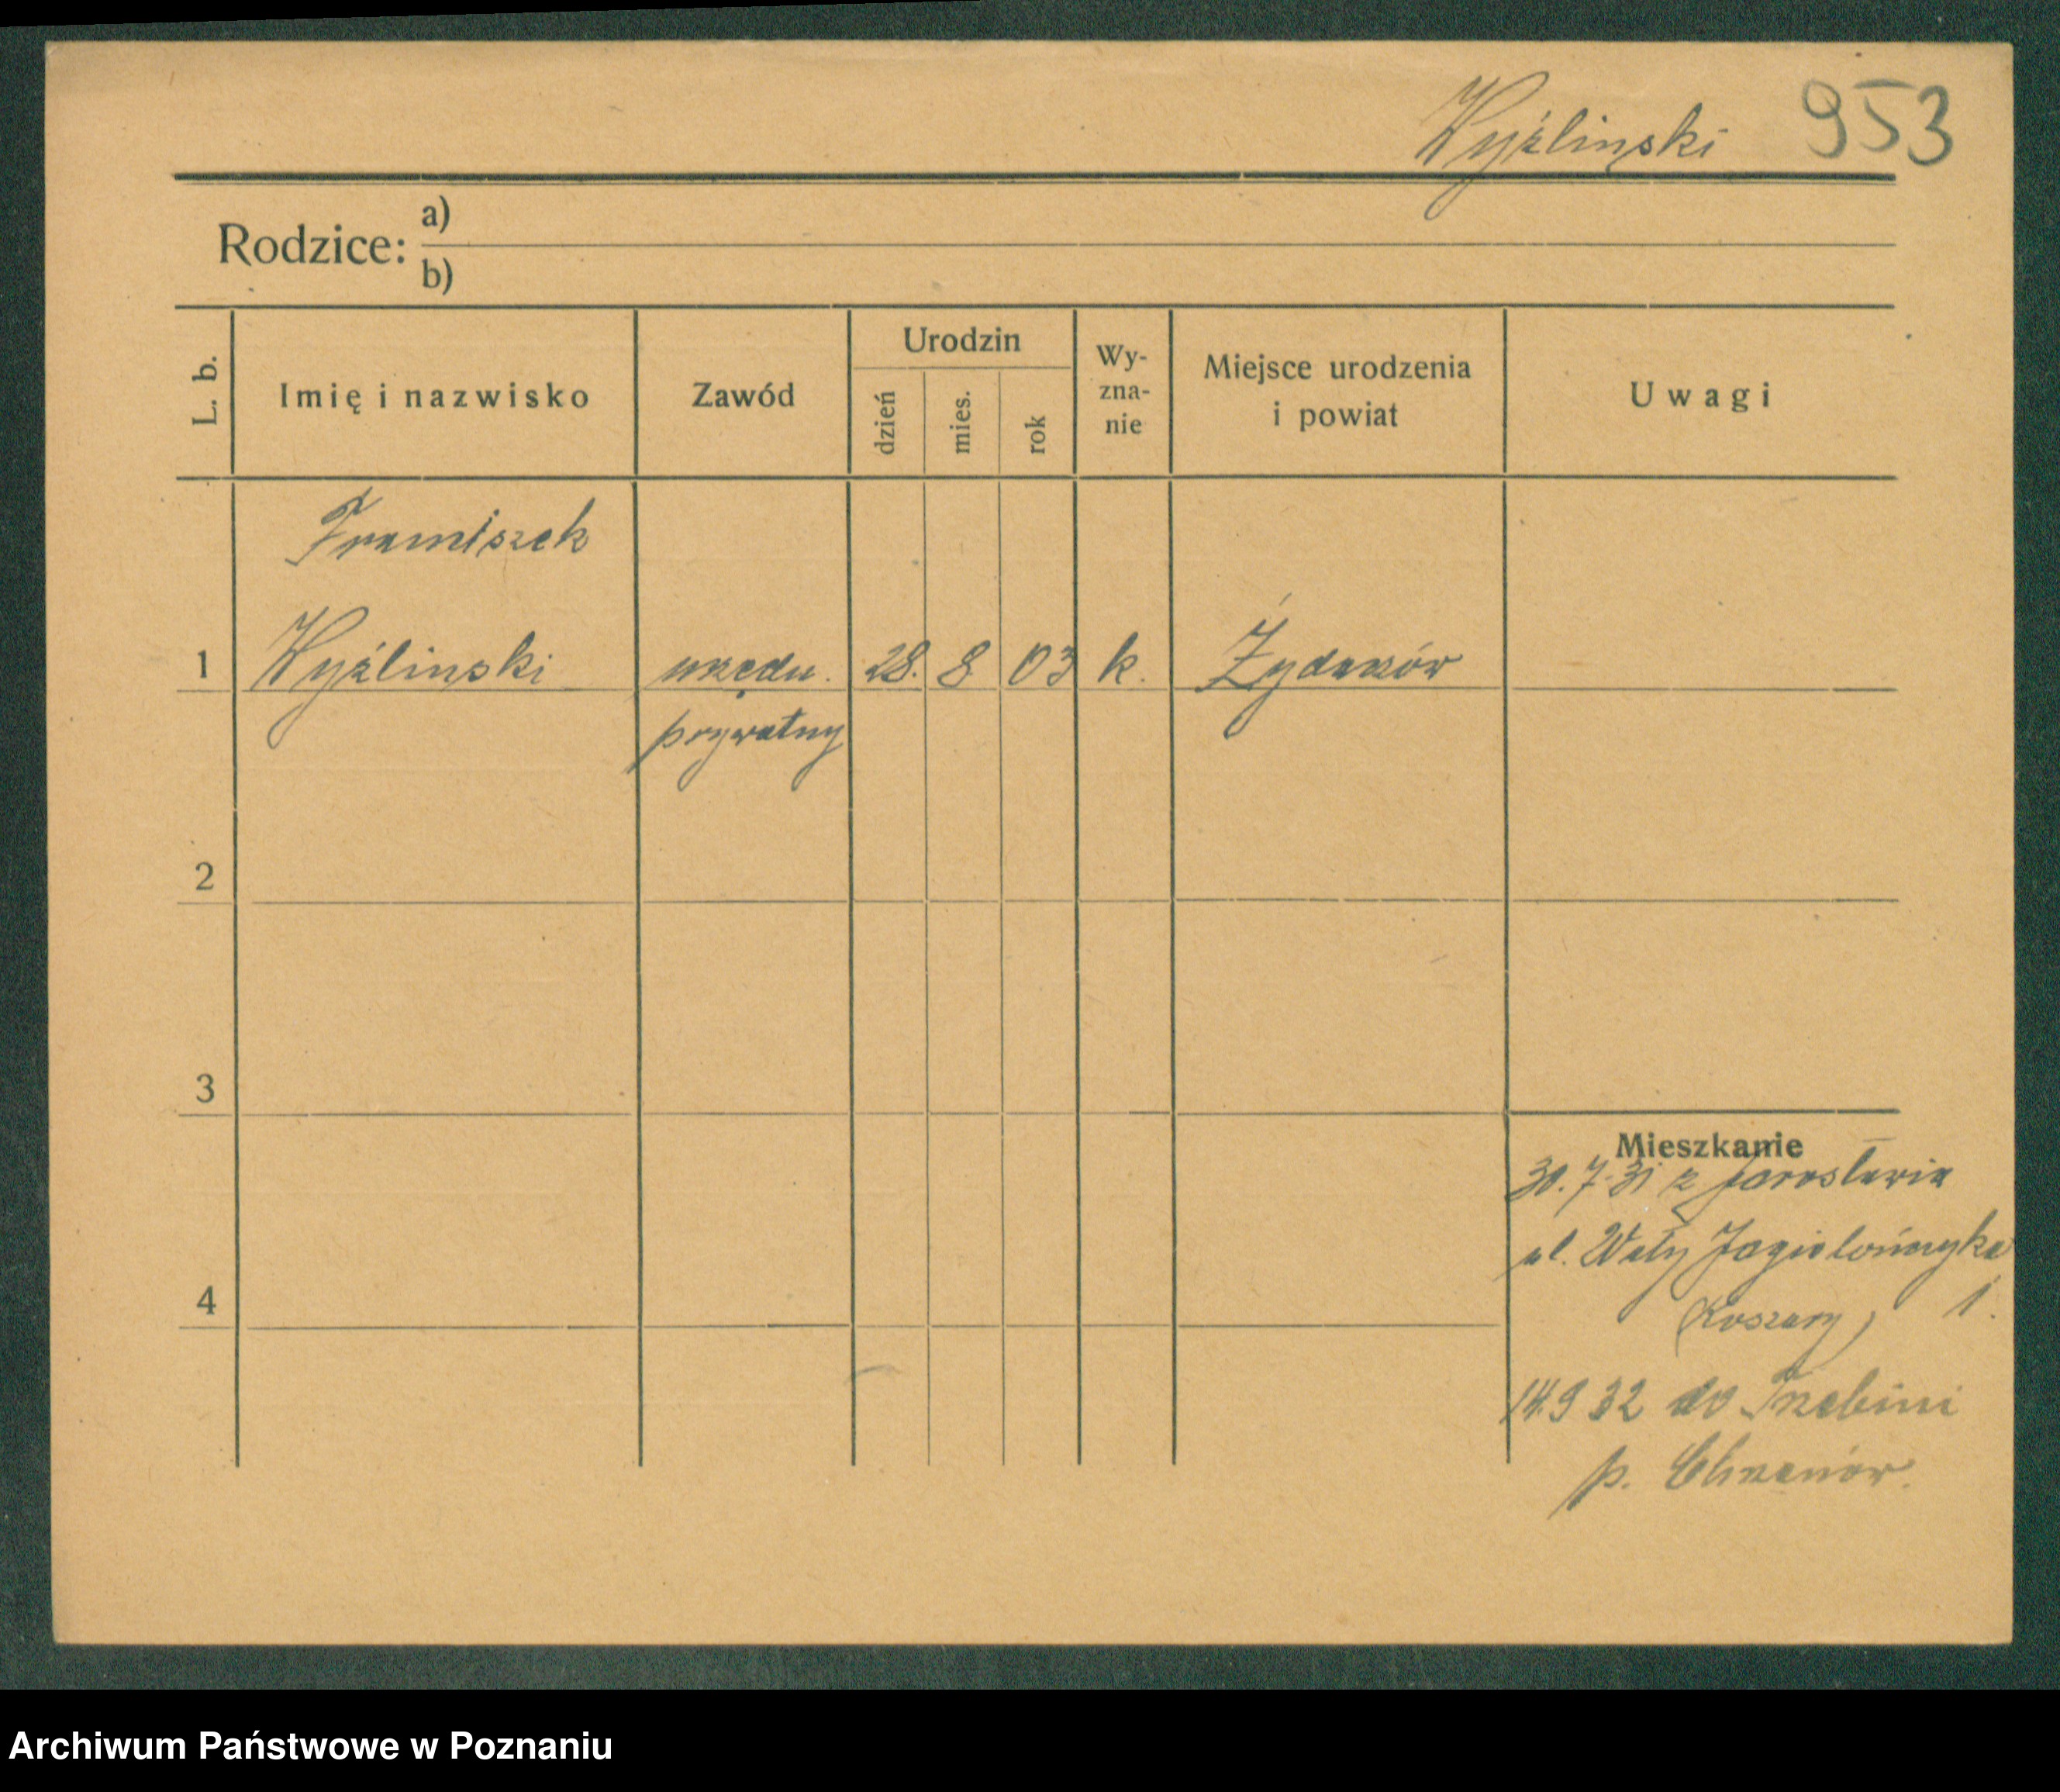 Wyźlinski 953
Rodzice: a)
b)
L. b.
Imię i nazwisko
Zawód
Urodzin
dzień
mies.
rok
Wy-
zna-
nie
Miejsce urodzenia
i powiat
Uwagi
Franciszek
1 Wyźlinski urzędn. 28. 8 03 k. Żydaczów
prywatny
2
3
4
Mieszkanie
30.7.31 z Jarosławia
ul. Wały Jagielończyka
(Koszary) 1.
14.9 32 do Trzebini
p. Chrzanów.
Archiwum Państwowe w Poznaniu